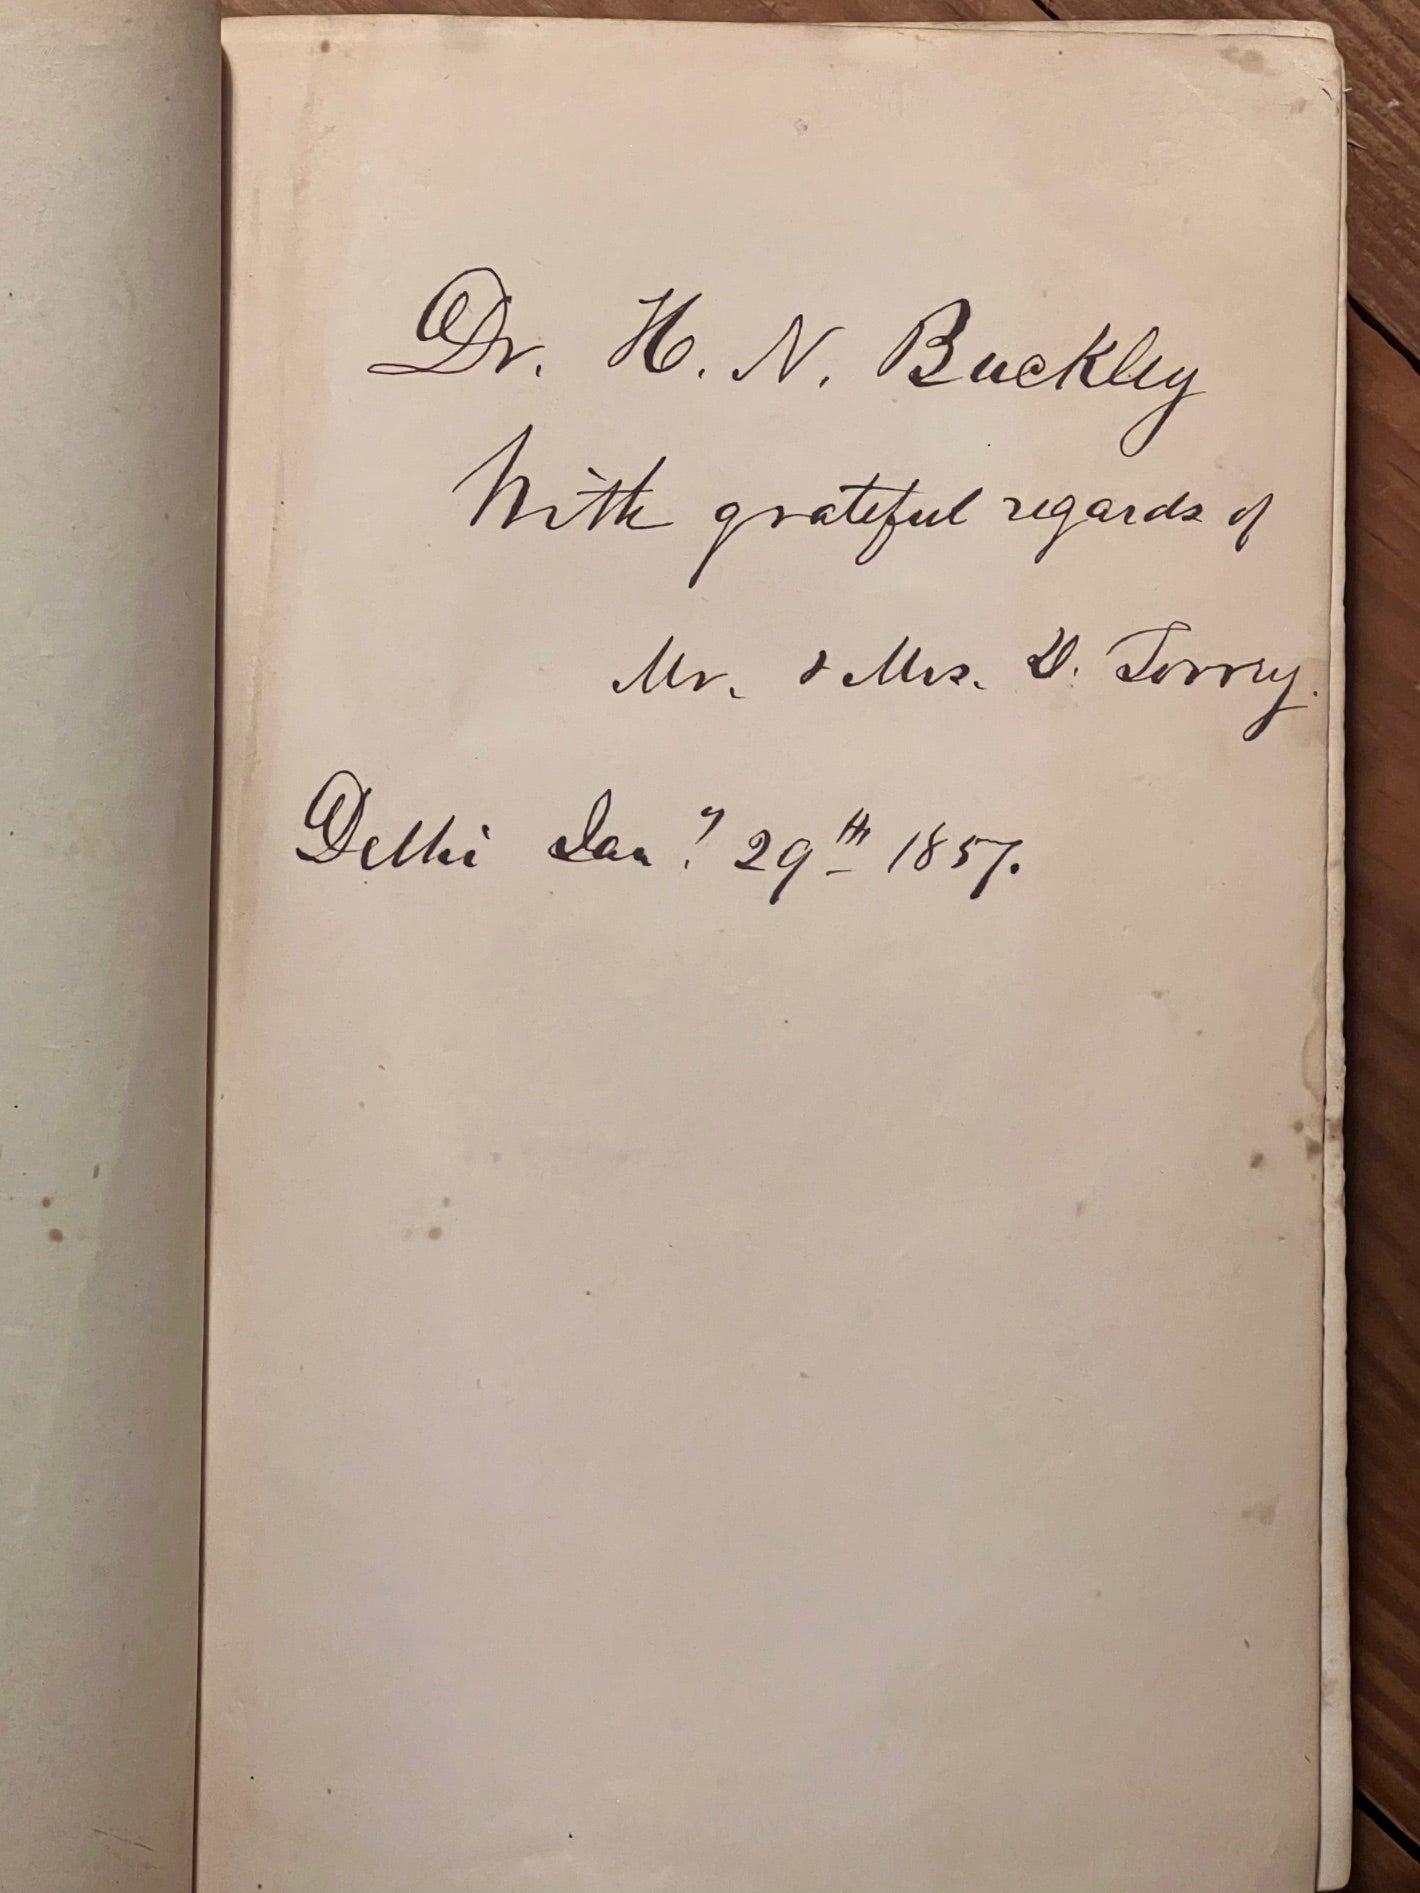 Dr. H. N. Buckley
With grateful regards of
Mr. & Mrs. D. Torrey.
Delhi Jan.y 29th 1857.